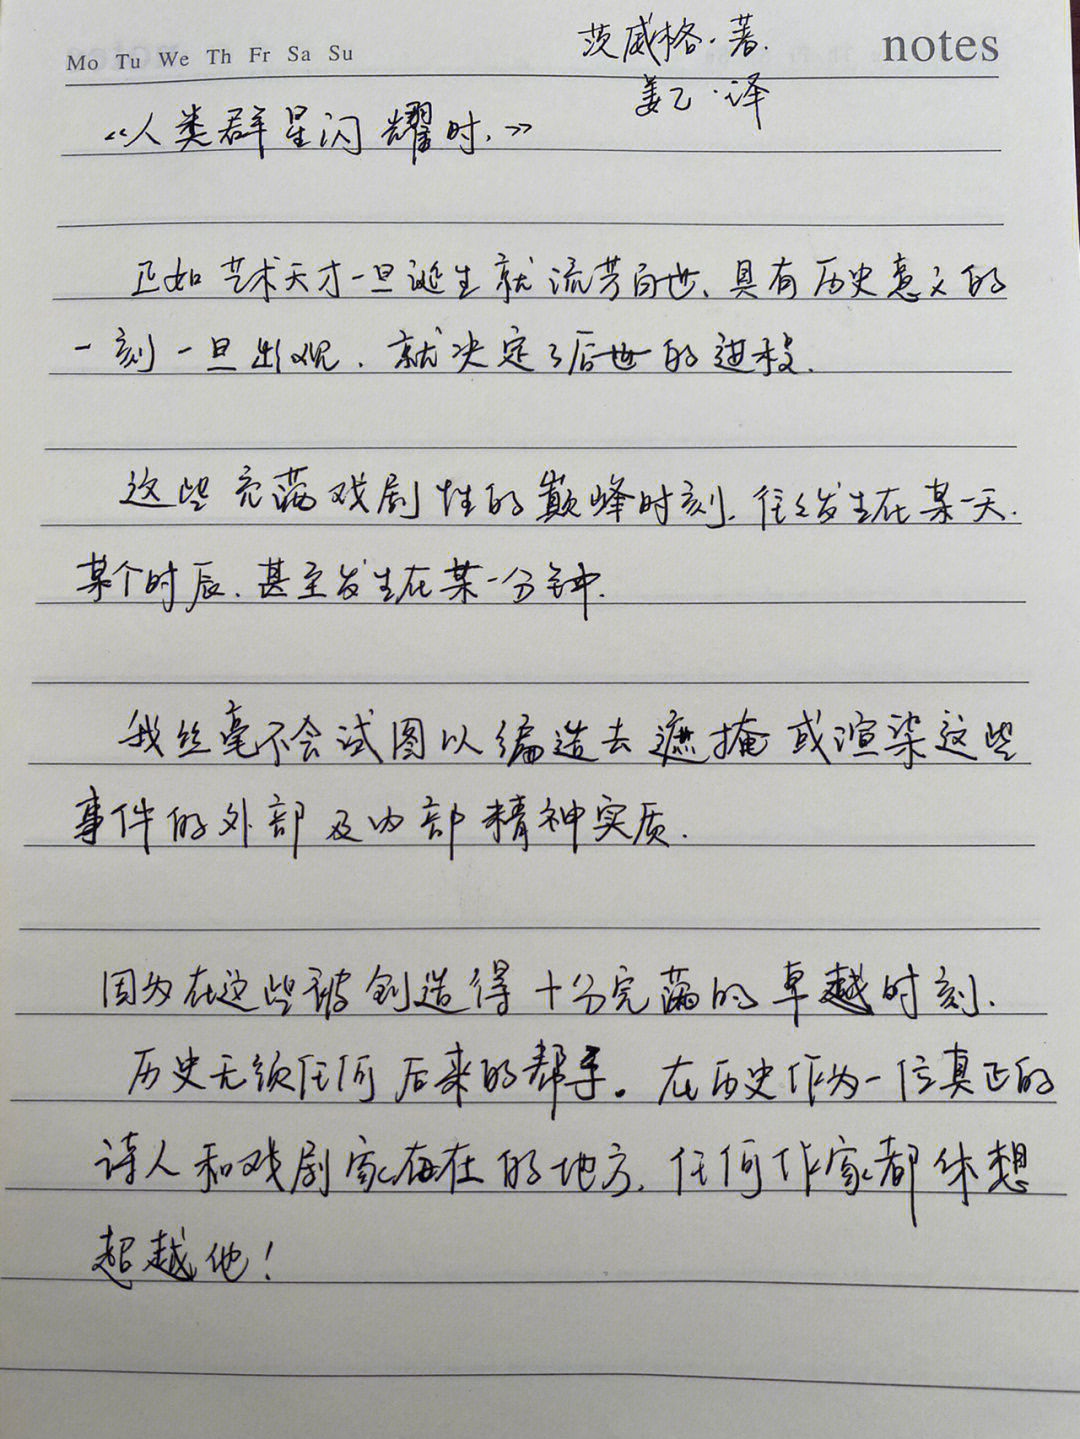 Mo Tu We Th Fr Sa Su
notes
茨威格·著.
姜乙·译
《人类群星闪耀时.》
正如艺术天才一旦诞生就流芳百世、具有历史意义的
一刻一旦出现.就决定了后世的进程.
这些充满戏剧性的巅峰时刻.往往发生在某一天.
某个时辰.甚至发生在某一分钟.
我丝毫不会试图以编造去遮掩或渲染这些
事件的外部及内部精神实质.
因为在这些被创造得十分完满的卓越时刻.
历史无须任何后来的帮手。在历史作为一位真正的
诗人和戏剧家存在的地方.任何作家都休想
超越他！